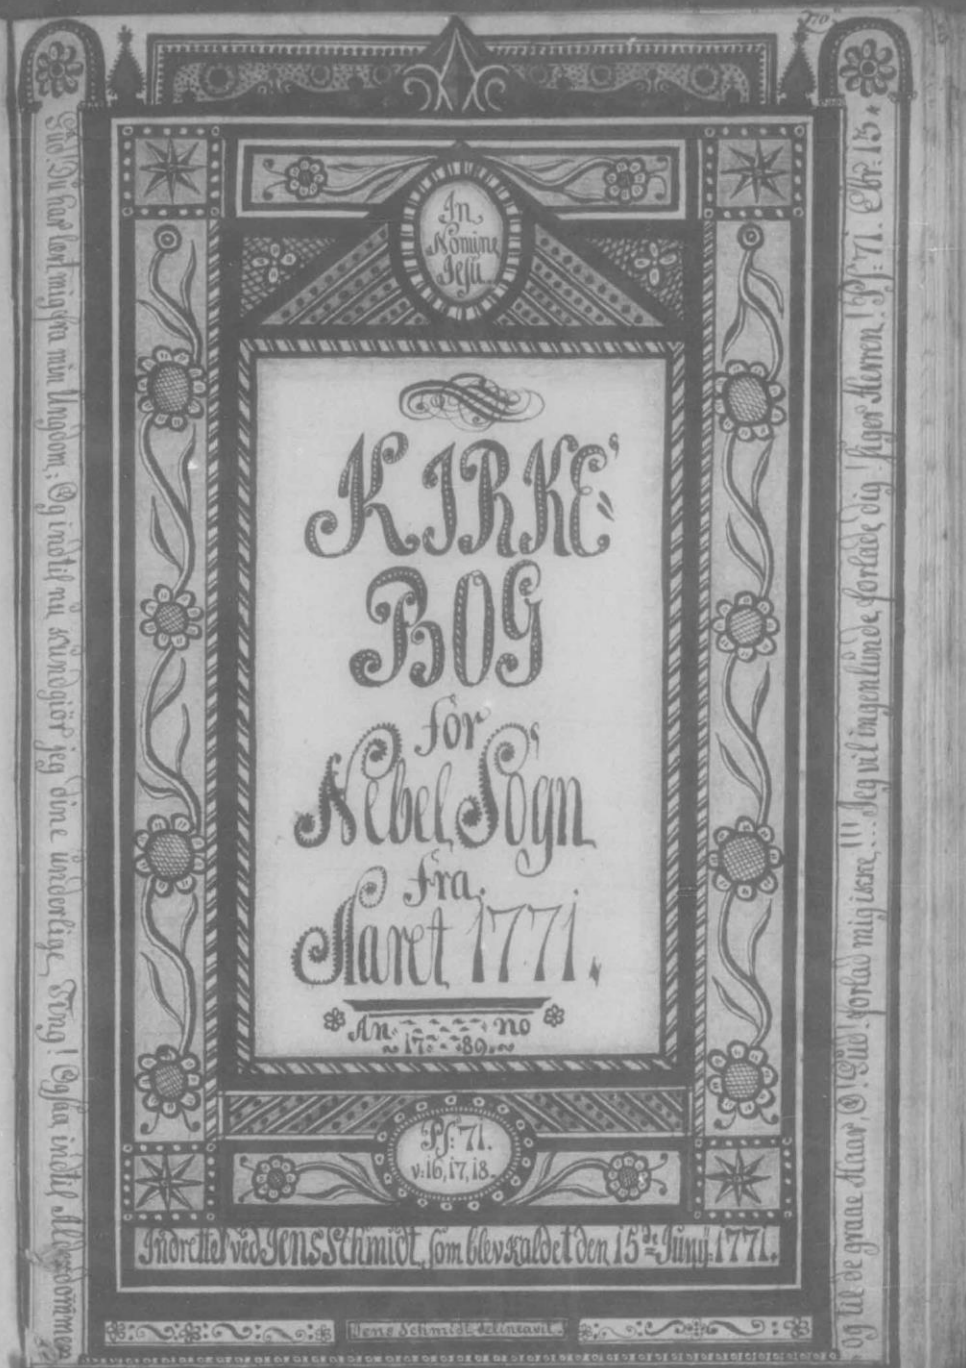 270
In
Nomine
Jesu
KIRKE
BOG
for
Nebel Sogn
fra
Aaret 1771.
An no
17 89
Ps: 71.
v: 16, 17, 18.
Indrettet ved Jens Schmidt, som blev kaldet den 15de Junij 1771.
Jens Schmidt delineavit.
Gud! Du har lært mig fra min Ungdom; Og indtil nu kundgiør jeg dine underlige Ting! Ogsaa indtil Alderdommen
og til de graae Haar, O! Gud! forlad mig ikke!!! Jeg vil ingenlunde forlade dig! siger Herren! Ps: 71. Ebr: 13